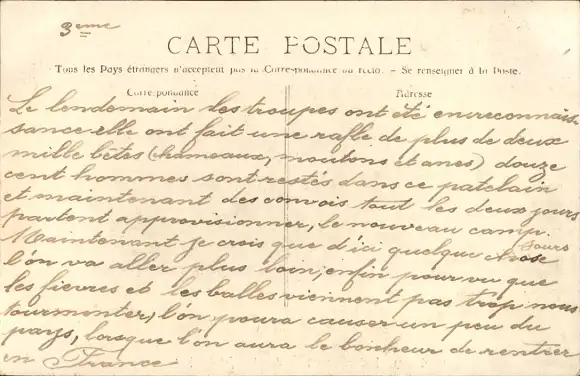 3eme
CARTE POSTALE
Tous les Pays étrangers n'acceptent pas la Correspondance au recto. - Se renseigner à la Poste.
Correspondance
Adresse
Le lendemain les troupes ont été en reconnais-
sance elle ont fait une rafle de plus de deux
mille bêtes (chameaux, moutons et anes) douze
cent hommes sont restés dans ce patelain
et maintenant des convois tout les deux jours
partent approvisionner, le nouveau camp.
Maintenant je crois que d'ici quelque jours
l'on va aller plus loin, enfin pour vu que
les fievres et les balles viennent pas trop nous
tourmonter, l'on poura causer un peu du
pays, lorsque l'on aura le bonheur de rentrer
en France